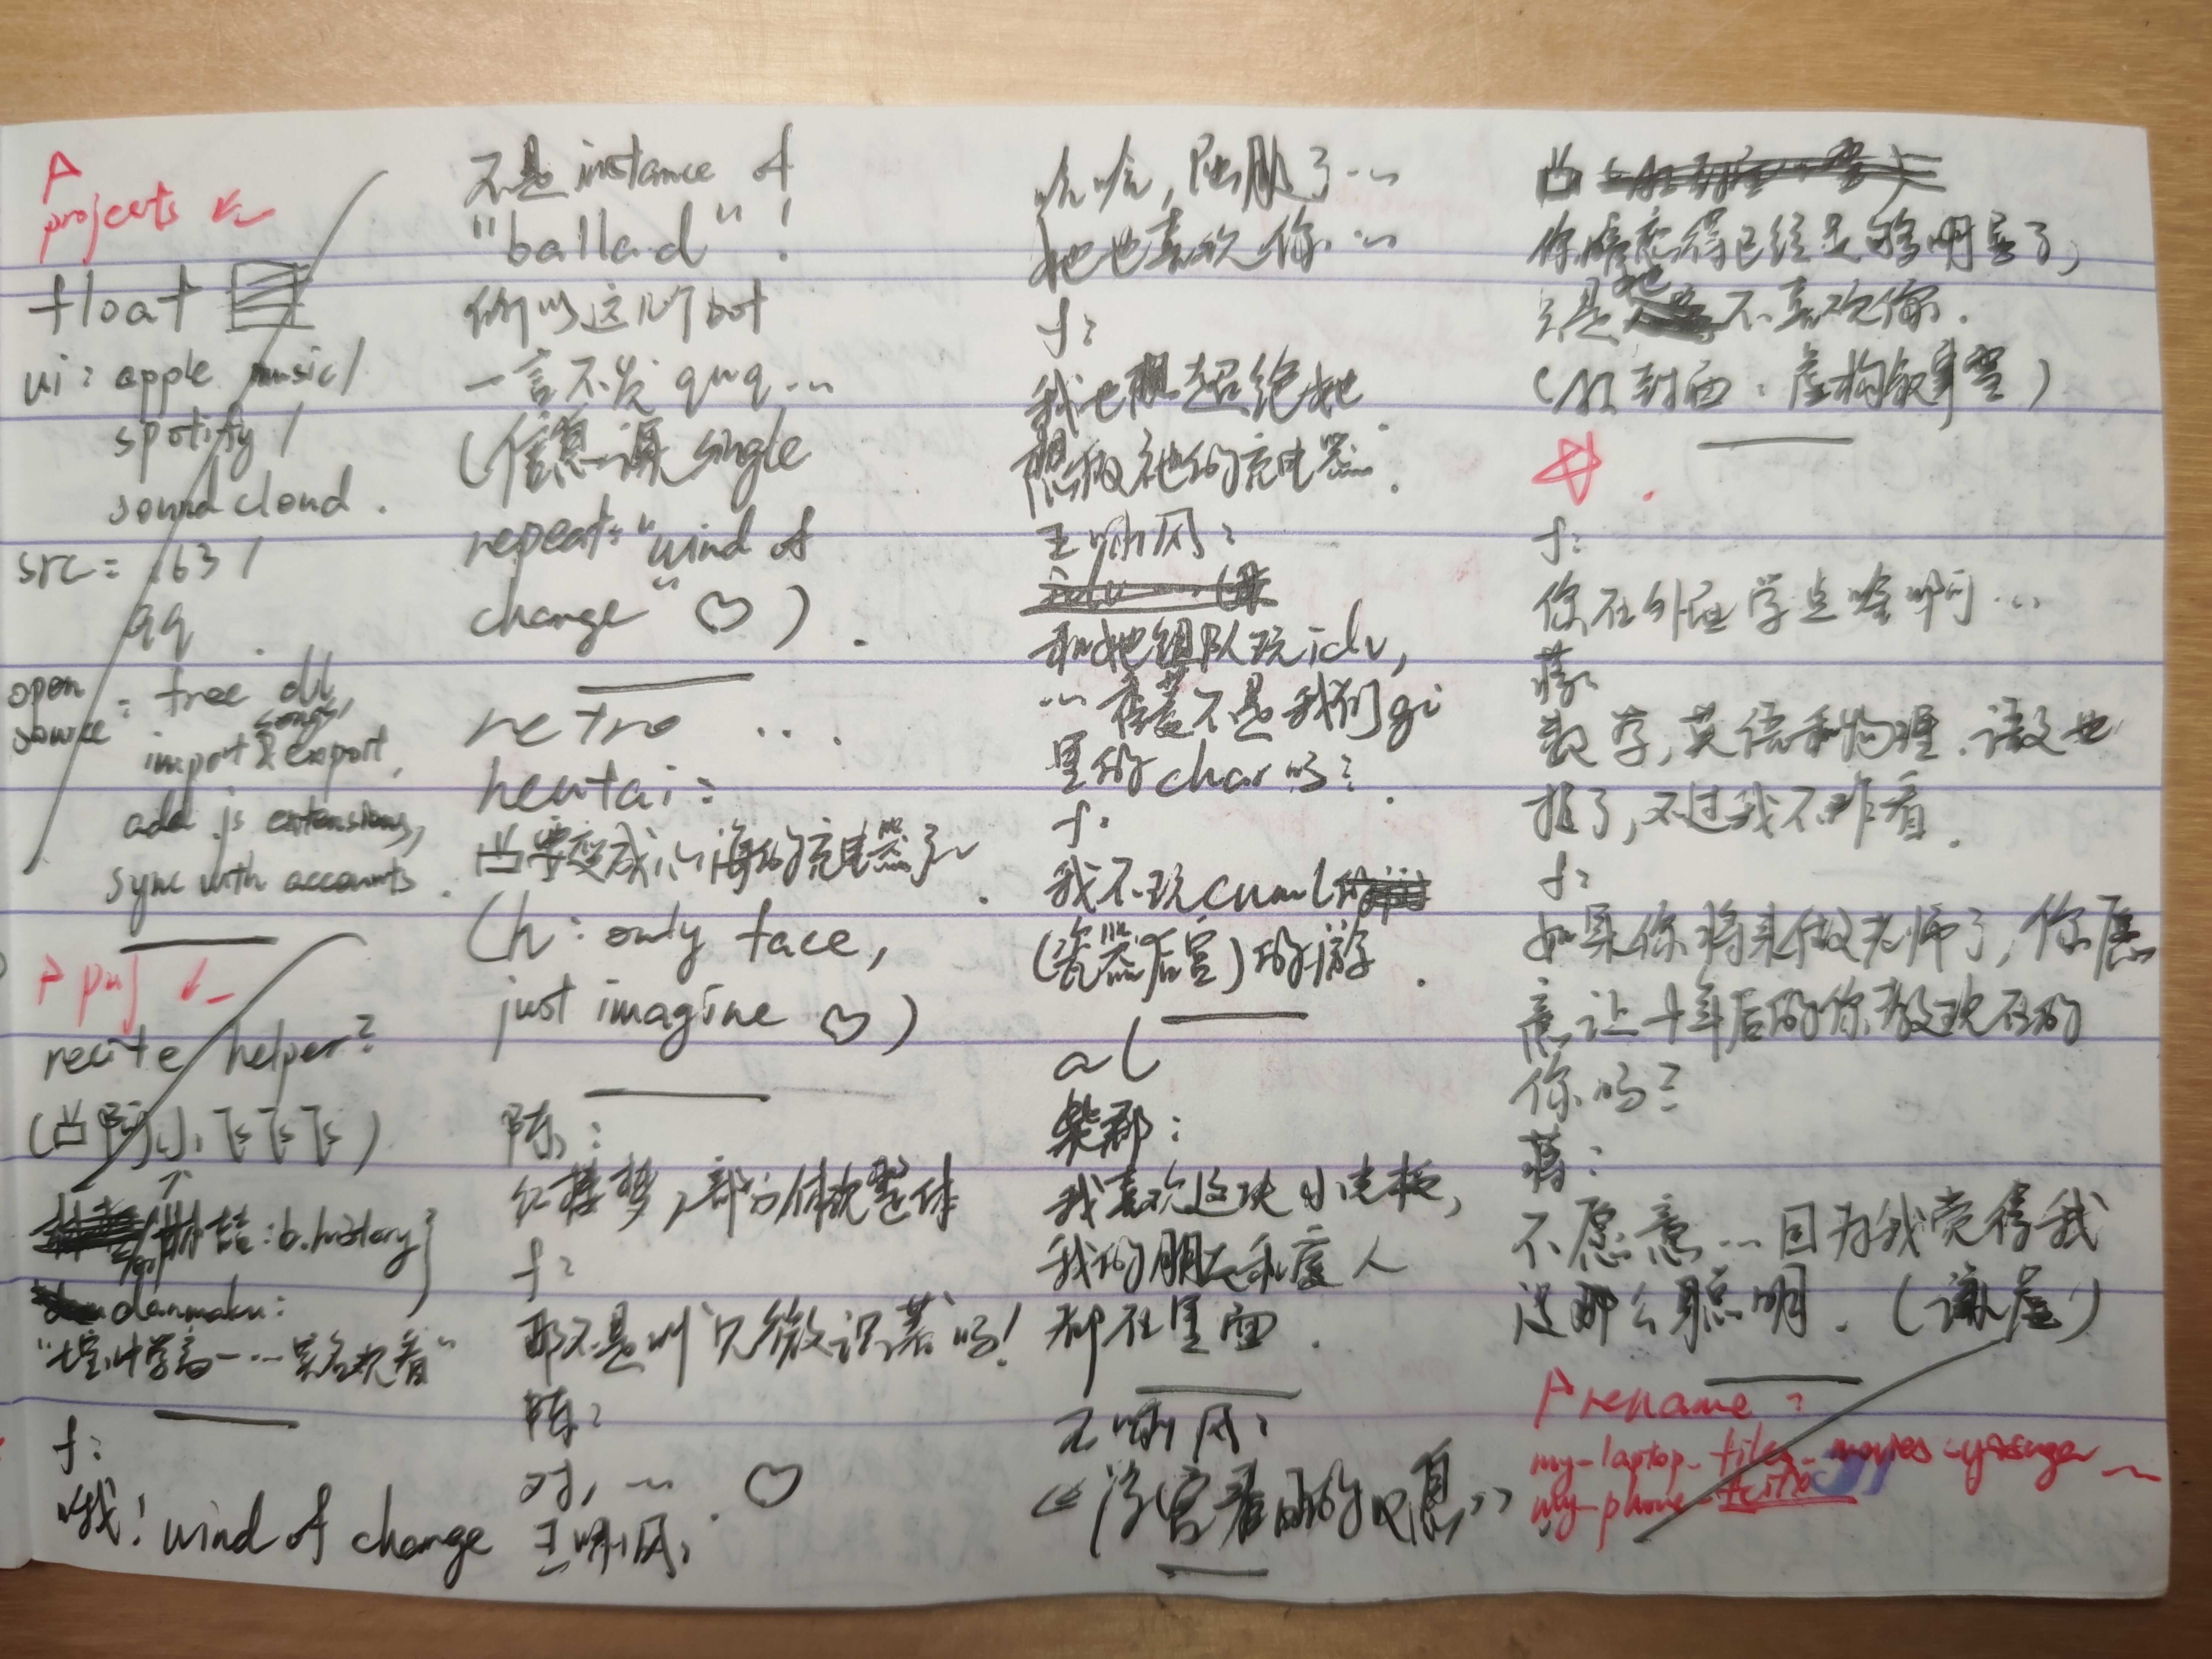 projects
float
ui: apple music/
spotify/
soundcloud.
src: 163/
qq.
open source: free dl,
songs,
import & export,
add js extensions,
sync with accounts.
proj
recite helper?
(凸 小飞飞飞)
喆: b.history
danmaku:
f:
哦! wind of change
不是 instance of
"ballad"!
你以这 bot
一言不发 qwq...
(信息课 single
repeat: "wind of
change" ♡).
retro ...
hentai:
凸要变成心海的充电器了
(h: only face,
just imagine ♡)
陈:
红楼梦,部分体现整体
f:
那不是叫"见微识著"吗!
陈:
对, ... ♡
王啊风:
哈哈, 了...
她也喜欢你...
f:
我也想超绝她.
想做她的充电器.
王啊风:
和她组队玩idv,
... 不是我们gi
里的char吗?
f:
我不玩cuml
(瓷器后宫)的游.
al
紫郡:
我喜欢这块小电板,
我的朋友和 人
都在里面.
王啊风:
凸
你 得已经足够明显了,
只是她不喜欢你.
(AI封面:虚构叙事 )
f:
你在外面学点啥啊...
蒋:
数学,英语和物理.语文也
报了,不过我不咋看.
f:
如果你将来做老师了,你愿
意让十年后的你教现在的
你吗?
蒋:
不愿意...因为我觉得我
没那么聪明.(谦虚)
rename:
my-laptop-files-movies-
my-phone-